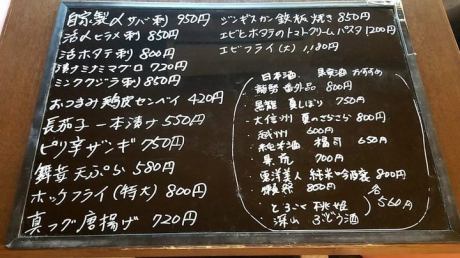 自家製〆サバ刺 950円
活〆ヒラメ刺 850円
活ホタテ刺 800円
漬けミナミマグロ 720円
ミンククジラ刺 850円
おつまみ鶏皮センベイ 420円
長茄子一本漬け 550円
ピリ辛ザンギ 750円
舞茸天ぷら 580円
ホッケフライ(特大) 800円
真フグ唐揚げ 720円
ジンギスカン鉄板焼き 850円
エビとホタテのトマトクリームパスタ 1200円
エビフライ(大) 1,180円
日本酒 おすすめ
番外品 800円
黒龍 夏しぼり 750円
大信州 夏のさらさら 800円
越州 600円
純米酒 650円
700円
東洋美人 純米吟醸 800円
獺祭 850円
とまこまい 桃姫
深山 ぶどう酒
各560円